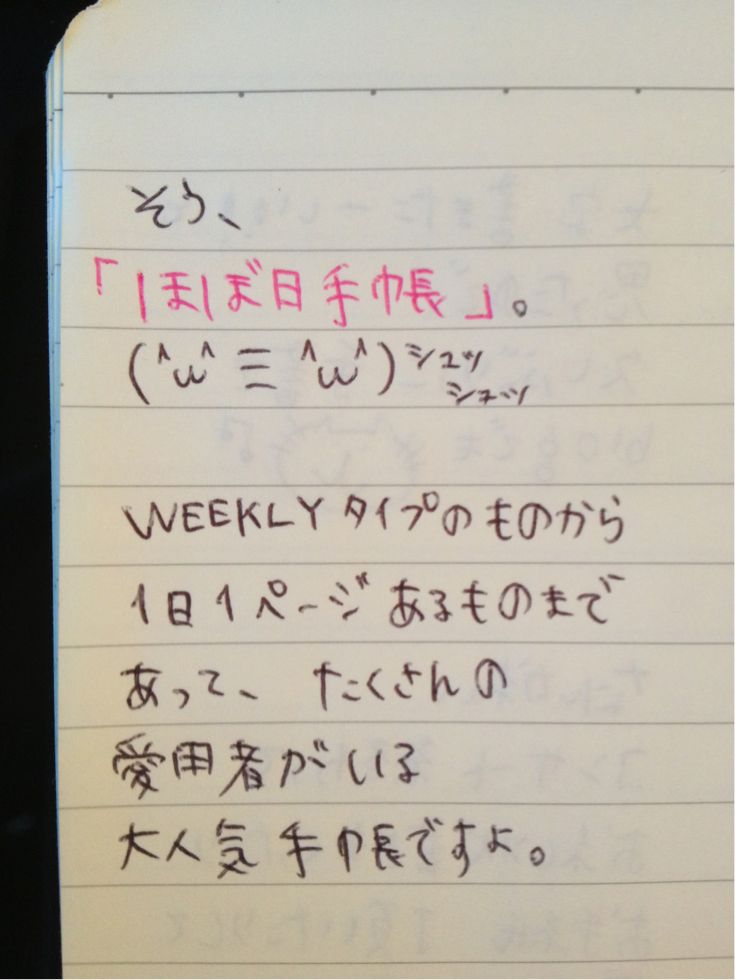 そう、
「ほぼ日手帳」。
(^ω^ 三 ^ω^)シュッ
シュッ
WEEKLYタイプのものから
1日1ページあるものまで
あって、たくさんの
愛用者がいる
大人気手帳ですよ。